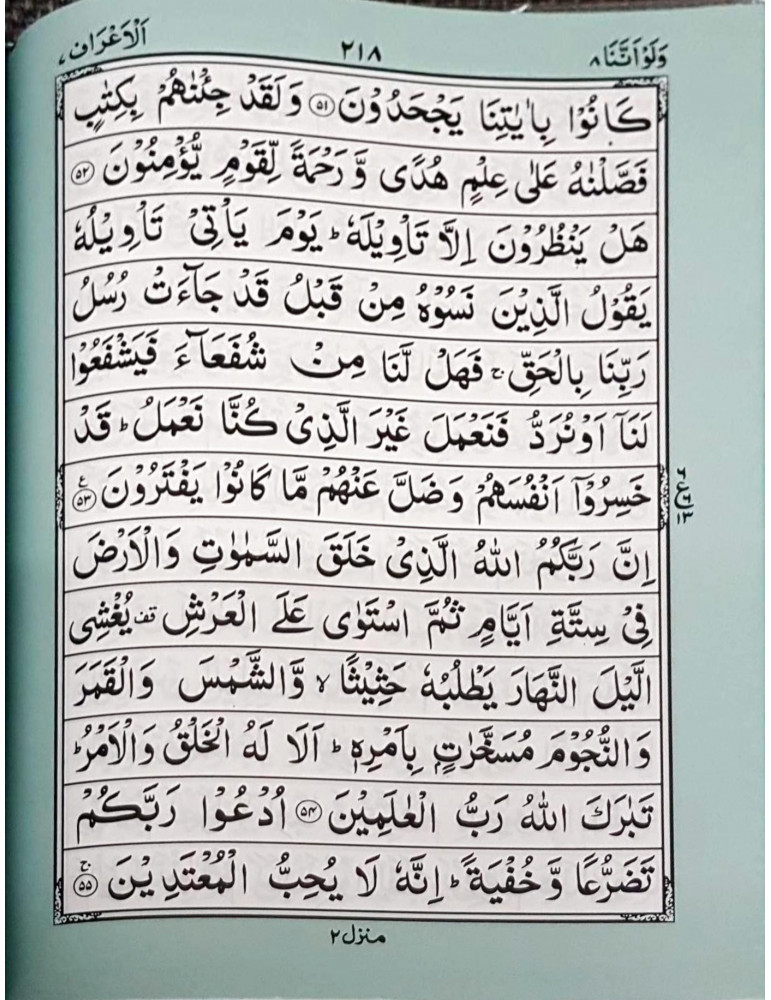 وَلَوْاَنَّنَا ٨ ٢١٨ اَلْاَعْرَاف ٧
كَانُوْا بِاٰيٰتِنَا يَجْحَدُوْنَ ﴿٥١﴾ وَلَقَدْ جِئْنٰهُمْ بِكِتٰبٍ
فَصَّلْنٰهُ عَلٰى عِلْمٍ هُدًى وَّ رَحْمَةً لِّقَوْمٍ يُّؤْمِنُوْنَ ﴿٥٢﴾
هَلْ يَنْظُرُوْنَ اِلَّا تَاْوِيْلَهٗ ؕ يَوْمَ يَاْتِيْ تَاْوِيْلُهٗ
يَقُوْلُ الَّذِيْنَ نَسُوْهُ مِنْ قَبْلُ قَدْ جَآءَتْ رُسُلُ
رَبِّنَا بِالْحَقِّ ۚ فَهَلْ لَّنَا مِنْ شُفَعَآءَ فَيَشْفَعُوْا
لَنَاۤ اَوْ نُرَدُّ فَنَعْمَلَ غَيْرَ الَّذِيْ كُنَّا نَعْمَلُ ؕ قَدْ
خَسِرُوْۤا اَنْفُسَهُمْ وَ ضَلَّ عَنْهُمْ مَّا كَانُوْا يَفْتَرُوْنَ ﴿٥٣﴾ ع
٦
ع ٦
١٣
اِنَّ رَبَّكُمُ اللّٰهُ الَّذِيْ خَلَقَ السَّمٰوٰتِ وَالْاَرْضَ
فِيْ سِتَّةِ اَيَّامٍ ثُمَّ اسْتَوٰى عَلَى الْعَرْشِ قف يُغْشِى
الَّيْلَ النَّهَارَ يَطْلُبُهٗ حَثِيْثًا ۙ وَّالشَّمْسَ وَالْقَمَرَ
وَالنُّجُوْمَ مُسَخَّرٰتٍۭ بِاَمْرِهٖ ؕ اَلَا لَهُ الْخَلْقُ وَالْاَمْرُ ؕ
تَبٰرَكَ اللّٰهُ رَبُّ الْعٰلَمِيْنَ ﴿٥٤﴾ اُدْعُوْا رَبَّكُمْ
تَضَرُّعًا وَّ خُفْيَةً ؕ اِنَّهٗ لَا يُحِبُّ الْمُعْتَدِيْنَ ﴿٥٥﴾ ۚ
منزل ٢